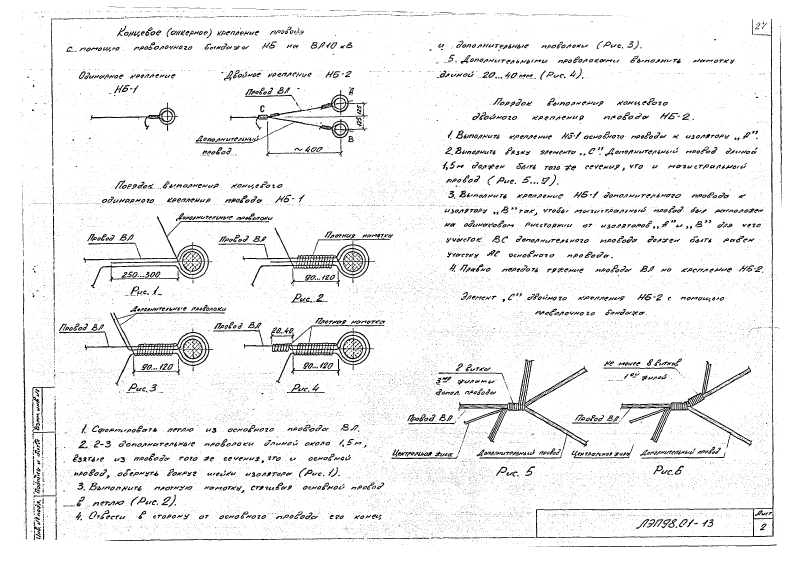 27
Концевое (анкерное) крепление провода
с помощью проволочного бандажа НБ на ВЛ 10 кВ
Одинарное крепление
НБ-1
Двойное крепление НБ-2
Провод ВЛ
А
С
125
125
В
Дополнительный
провод
~ 400
Порядок выполнения концевого
одинарного крепления провода НБ-1
Дополнительные проволоки
Провод ВЛ
250...300
Рис. 1
Провод ВЛ
Плотная намотка
90...120
Рис. 2
Дополнительные проволоки
Провод ВЛ
90...120
Рис. 3
Провод ВЛ
20..40
Плотная намотка
90...120
Рис. 4
1. Сформировать петлю из основного провода ВЛ.
2. 2-3 дополнительные проволоки длиной около 1,5м,
взятые из провода того же сечения, что и основной
провод, обернуть вокруг шейки изолятора (Рис. 1).
3. Выполнить плотную намотку, стягивая основной провод
в петлю (Рис. 2).
4. Отвести в сторону от основного провода его конец
и дополнительные проволоки (Рис. 3).
5. Дополнительными проволоками выполнить намотку
длиной 20...40мм (Рис. 4).
Порядок выполнения концевого
двойного крепления провода НБ-2.
1. Выполнить крепление НБ-1 основного провода к изолятору „А".
2. Выполнить вязку элемента „С". Дополнительный провод длиной
1,5м должен быть того же сечения, что и магистральный
провод (Рис. 5...9).
3. Выполнить крепление НБ-1 дополнительного провода к
изолятору „В" так, чтобы магистральный провод был расположен
на одинаковом расстоянии от изоляторов „А" и „В" для чего
участок ВС дополнительного провода должен быть равен
участку АС основного провода.
4. Плавно передать тяжение провода ВЛ на крепление НБ-2.
Элемент „С" двойного крепления НБ-2 с помощью
проволочного бандажа.
2 витка
3мя жилами
допол. провода
Провод ВЛ
Центральная жила
Дополнительный провод
Рис. 5
Не менее 8 витков
1ой жилой
Провод ВЛ
Центральная жила
Дополнительный провод
Рис. 6
Инв. № подл.
Подпись и дата
Взам. инв. №
ЛЭП98.01-13
Лист
2